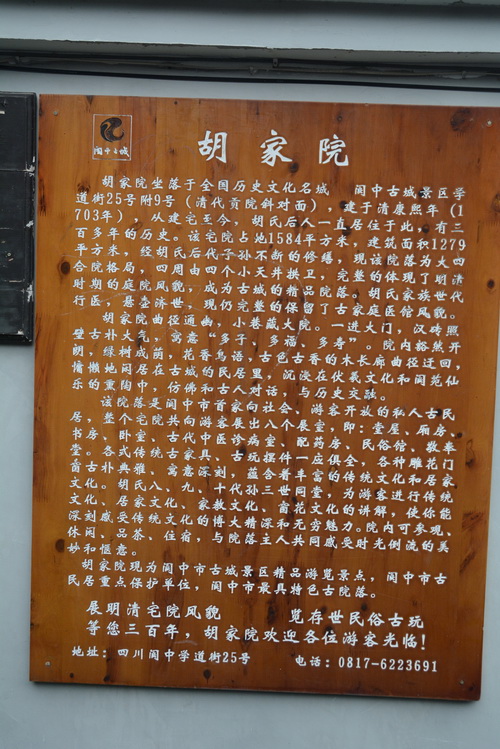 阆中古城
胡家院
胡家院坐落于全国历史文化名城 阆中古城景区学
道街25号附9号（清代贡院斜对面），建于清康熙年（1
703年），从建宅至今，胡氏后人一直居住于此，有三
百多年的历史。该宅院占地1584平方米，建筑面积1279
平方米，经胡氏后代子孙不断的修缮，现该院落为大四
合院格局，四周由四个小天井拱卫，完整的体现了明清
时期的庭院风貌，成为古城的精品院落。胡氏家族世代
行医，悬壶济世，现仍完整的保留了古家庭医馆风貌。
胡家院曲径通幽，小巷藏大院。一进大门，汉砖照
壁古朴大气，寓意“多子，多福，多寿”。院内豁然开
朗，绿树成荫，花香鸟语，古色古香的木长廊曲径迂回，
慵懒地闲居在古城的民居里，沉浸在伏羲文化和阆苑仙
乐的熏陶中，仿佛和古人对话，与历史交融。
该院落是阆中市首家向社会、游客开放的私人古民
居，整个宅院共向游客展出八个展室，即：堂屋、厢房、
书房、卧室、古代中医诊病室、配药房、民俗馆、敬奉
堂。各式传统古家具、古玩摆件一应俱全，各种雕花门
窗古朴典雅、寓意深刻，蕴含着丰富的传统文化和居家
文化。胡氏八、九、十代孙三世同堂，为游客进行传统
文化、居家文化、家教文化、窗花文化的讲解，使你能
深刻感受传统文化的博大精深和无穷魅力。院内可参观、
休闲、品茶、住宿，与院落主人共同感受时光倒流的美
妙和惬意。
胡家院现为阆中市古城景区精品游览景点，阆中市古
民居重点保护单位，阆中市最具特色古院落。
展明清宅院风貌 览存世民俗古玩
等您三百年，胡家院欢迎各位游客光临！
地址：四川阆中学道街25号 电话：0817-6223691